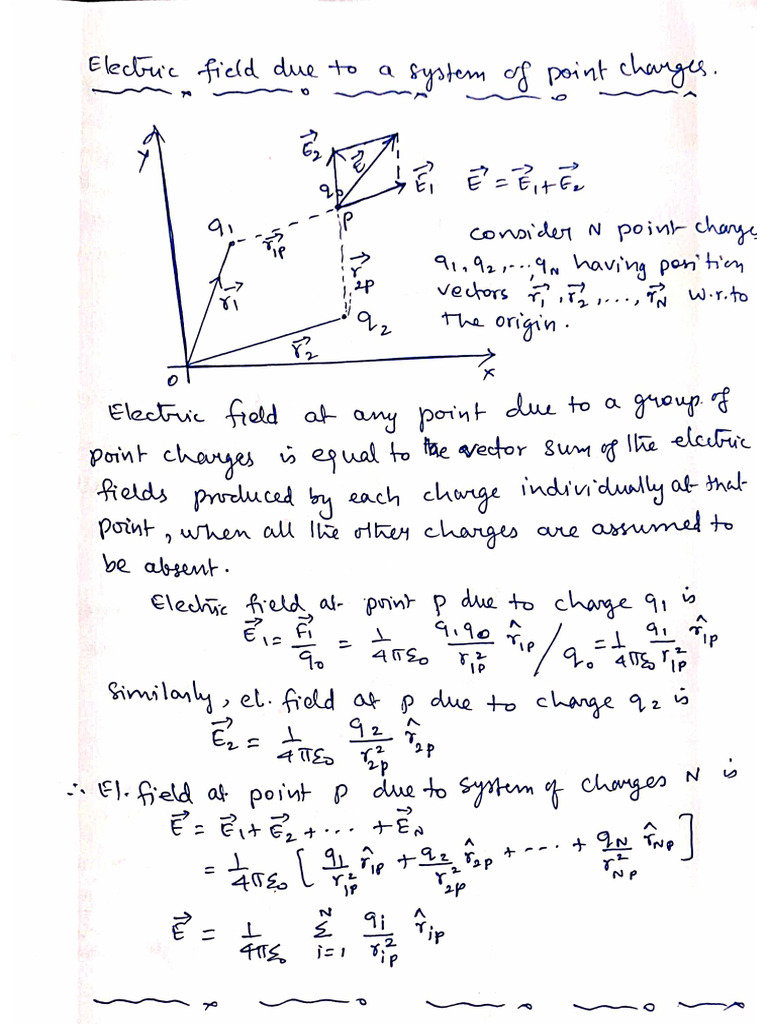 Electric field due to a system of point charges.
y
E⃗₂
E⃗
q₀
E⃗₁
E⃗ = E⃗₁ + E⃗₂
P
q₁
r⃗₁ₚ
r⃗₂ₚ
r⃗₁
q₂
r⃗₂
O
x
Consider N point charge
q₁, q₂, ..., q_N having position
vectors r⃗₁, r⃗₂, ..., r⃗_N w.r.to
the origin.
Electric field at any point due to a group of
point charges is equal to the vector sum of the electric
fields produced by each charge individually at that
point, when all the other charges are assumed to
be absent.
Electric field at point p due to charge q₁ is
E⃗₁ = F⃗₁/q₀ = 1/4πε₀ q₁q₀/r₁ₚ² r̂₁ₚ / q₀ = 1/4πε₀ q₁/r₁ₚ² r̂₁ₚ
Similarly, el. field at p due to charge q₂ is
E⃗₂ = 1/4πε₀ q₂/r₂ₚ² r̂₂ₚ
∴ El. field at point p due to system of charges N is
E⃗ = E⃗₁ + E⃗₂ + ... + E⃗_N
= 1/4πε₀ [ q₁/r₁ₚ² r̂₁ₚ + q₂/r₂ₚ² r̂₂ₚ + --- + q_N/r_Nₚ² r̂_Nₚ ]
E⃗ = 1/4πε₀ Σ_{i=1}^{N} qᵢ/rᵢₚ² r̂ᵢₚ